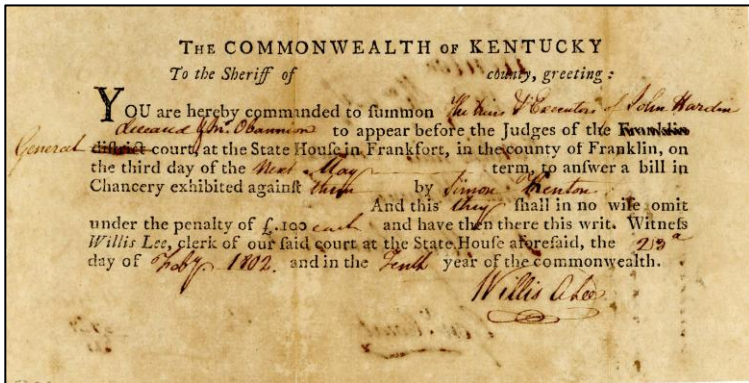 THE COMMONWEALTH OF KENTUCKY
To the Sheriff of county, greeting:
YOU are hereby commanded to summon The heirs & Executors of John Hardin
deceased & Jno. Obannion to appear before the Judges of the Franklin
General district court, at the State House in Frankfort, in the county of Franklin, on
the third day of the Next May term, to answer a bill in
Chancery exhibited against them by Simon Kenton
And this they shall in no wise omit
under the penalty of £.100 each and have then there this writ. Witness
Willis Lee, clerk of our said court at the State House aforesaid, the 23d
day of Feby 1802. and in the Tenth year of the commonwealth.
Willis A Lee